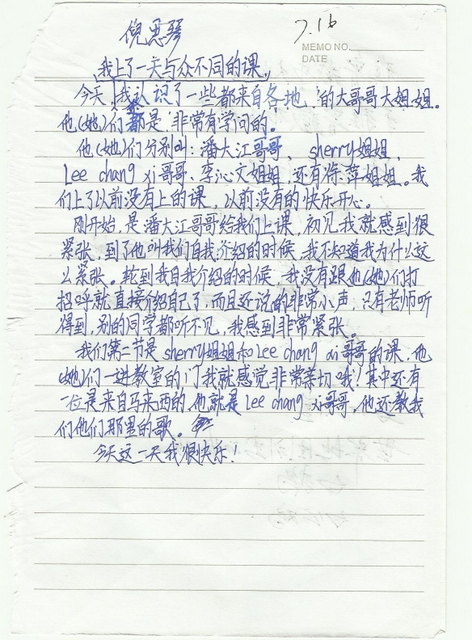 倪思琴
7.16
MEMO NO.
DATE
我上了一天与众不同的课。
今天,我认识了一些都来自各地的大哥哥大姐姐。
他(她)们都是非常有学问的。
他(她)们分别叫:潘大江哥哥、sherry姐姐、
Lee chang xi哥哥、李沁文姐姐、还有徐萍姐姐。我
们上了以前没有上的课,以前没有的快乐开心。
刚开始,是潘大江哥哥给我们上课,初见我就感到很
紧张,到了他叫我们自我介绍的时候,我不知道我为什么这
么紧张。轮到我自我介绍的时候,我没有跟他(她)们打
招呼就直接介绍自己了,而且还说的非常小声,只有老师听
得到,别的同学都听不见,我感到非常紧张。
我们第一节是sherry姐姐和Lee chang xi哥哥的课,他
(她)们一进教室的门我就感觉非常亲切哦!其中还有
一位是来自马来西的,他就是Lee chang xi哥哥,他还教我
们他们那里的歌。
今天这一天我很快乐!